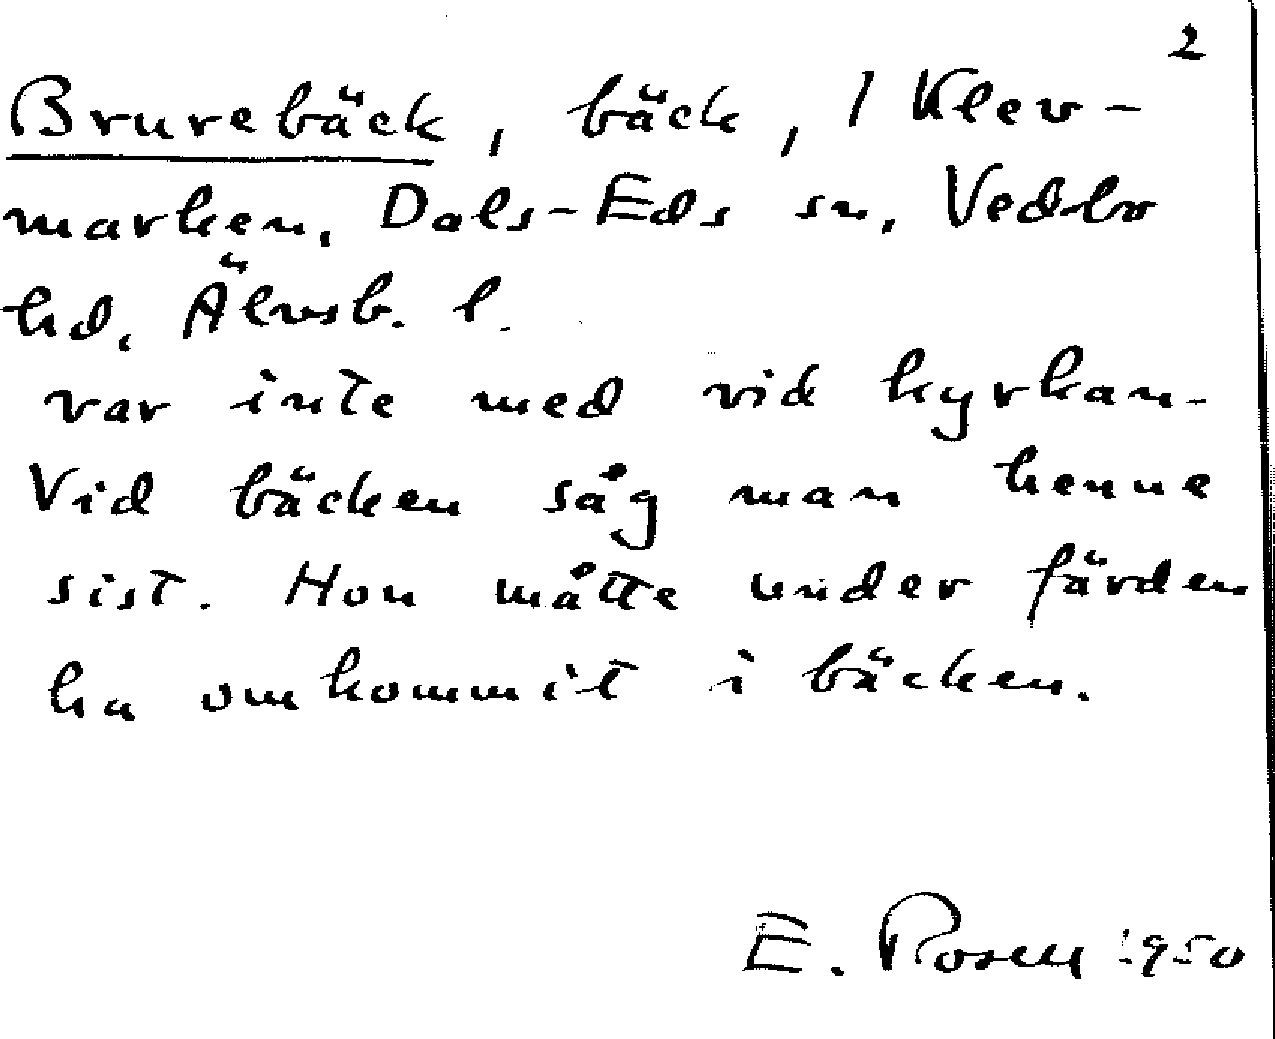 2
Brurebäck, bäck, / Klev-
marken, Dals-Eds sn, Vedbo
hd, Älvsb. l.
var inte med vid kyrkan.
Vid bäcken såg man henne
sist. Hon måtte under färden
ha omkommit i bäcken.
E. Rosell 1950